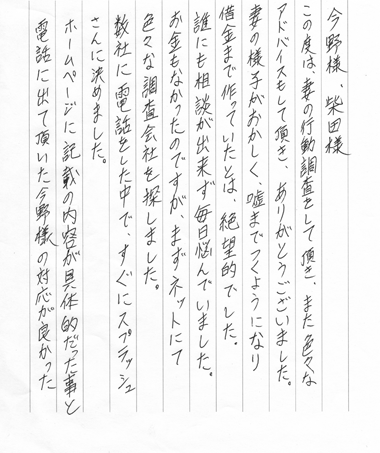 今野様、柴田様
この度は、妻の行動調査をして頂き、また色々な
アドバイスもして頂き、ありがとうございました。
妻の様子がおかしく、嘘までつくようになり
借金まで作っていたとは、絶望的でした。
誰にも相談が出来ず毎日悩んでいました。
お金もなかったのですが、まずネットにて
色々な調査会社を探しました。
数社に電話をした中で、すぐにスプラッシュ
さんに決めました。
ホームページに記載の内容が具体的だった事と
電話に出て頂いた今野様の対応が良かった